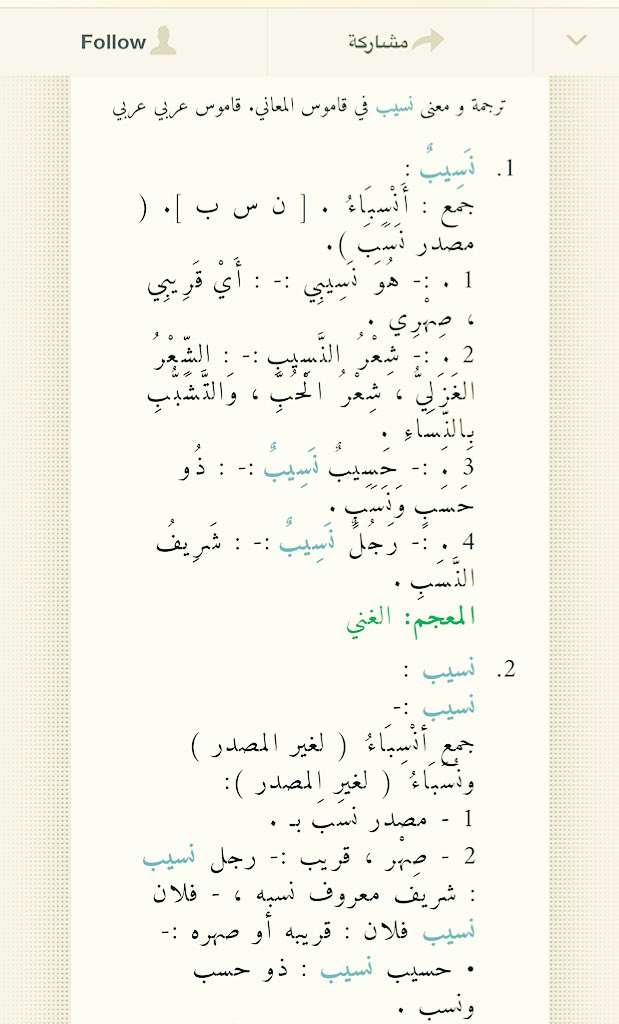 Follow
مشاركة
ترجمة و معنى نسيب في قاموس المعاني. قاموس عربي عربي
1. نَسِيبٌ :
جمع : أَنْسِبَاءُ . [ ن س ب ]. (
مصدر نَسَبَ ).
1 . :- هُوَ نَسِيبِي :- : أَيْ قَرِيبِي
، صِهْرِي .
2 . :- شِعْرُ النَّسِيبِ :- : الشِّعْرُ
الغَزَلِيُّ ، شِعْرُ الْحُبِّ ، وَالتَّشَبُّبِ
بِالنِّسَاءِ .
3 . :- حَسِيبٌ نَسِيبٌ :- : ذُو
حَسَبٍ وَنَسَبٍ .
4 . :- رَجُلٌ نَسِيبٌ :- : شَرِيفُ
النَّسَبِ .
المعجم: الغني
2. نسيب :
نسيب :-
جمع أنْسِبَاءُ ( لغير المصدر )
ونُسَبَاءُ ( لغير المصدر ):
1 - مصدر نسَبَ بـ .
2 - صِهْر ، قريب :- رجل نسيب
: شريف معروف نسبه ، - فلان
نسيب فلان : قريبه أو صهره :-
• حسيب نسيب : ذو حسب
ونسب .